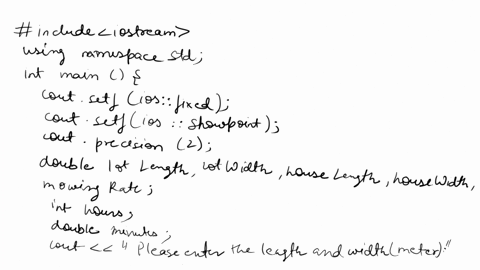 #include<iostream>
using namespace std;
int main () {
cout.setf (ios::fixed);
cout.setf (ios :: showpoint);
cout. precision (2);
double lot Length, lot Width, house Length, house Width,
mowing Rate;
int hours;
double minutes;
cout << " Please enter the length and width (meter):"